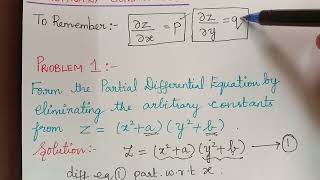 To Remember:- ∂z/∂x = p ∂z/∂y = q
PROBLEM 1:-
Form the Partial Differential Equation by
eliminating the arbitrary constants
from Z = (x²+a)(y²+b).
Solution:- Z = (x²+a)(y²+b) → ①
diff. eq ① part. w.r.t x.